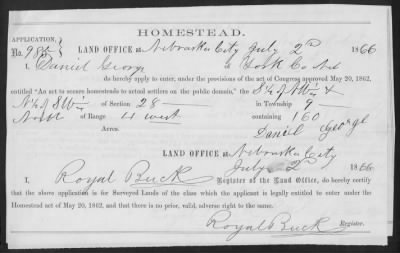 HOMESTEAD.
APPLICATION,
No. 98
LAND OFFICE at Nebraska City July 2nd 1866
I, Daniel George of York Co Neb
do hereby apply to enter, under the provisions of the act of Congress approved May 20, 1862,
entitled "An act to secure homesteads to actual settlers on the public domain," the S ½ of N W ¼ &
N ½ of S W ¼ of Section 28 in Township 9
North of Range 4 West containing 160
Acres.
Daniel George
LAND OFFICE at Nebraska City
July 2 1866
I, Royal Buck Register of the Land Office, do hereby certify
that the above application is for Surveyed Lands of the class which the applicant is legally entitled to enter under the
Homestead act of May 20, 1862, and that there is no prior, valid, adverse right to the same.
Royal Buck
Register.